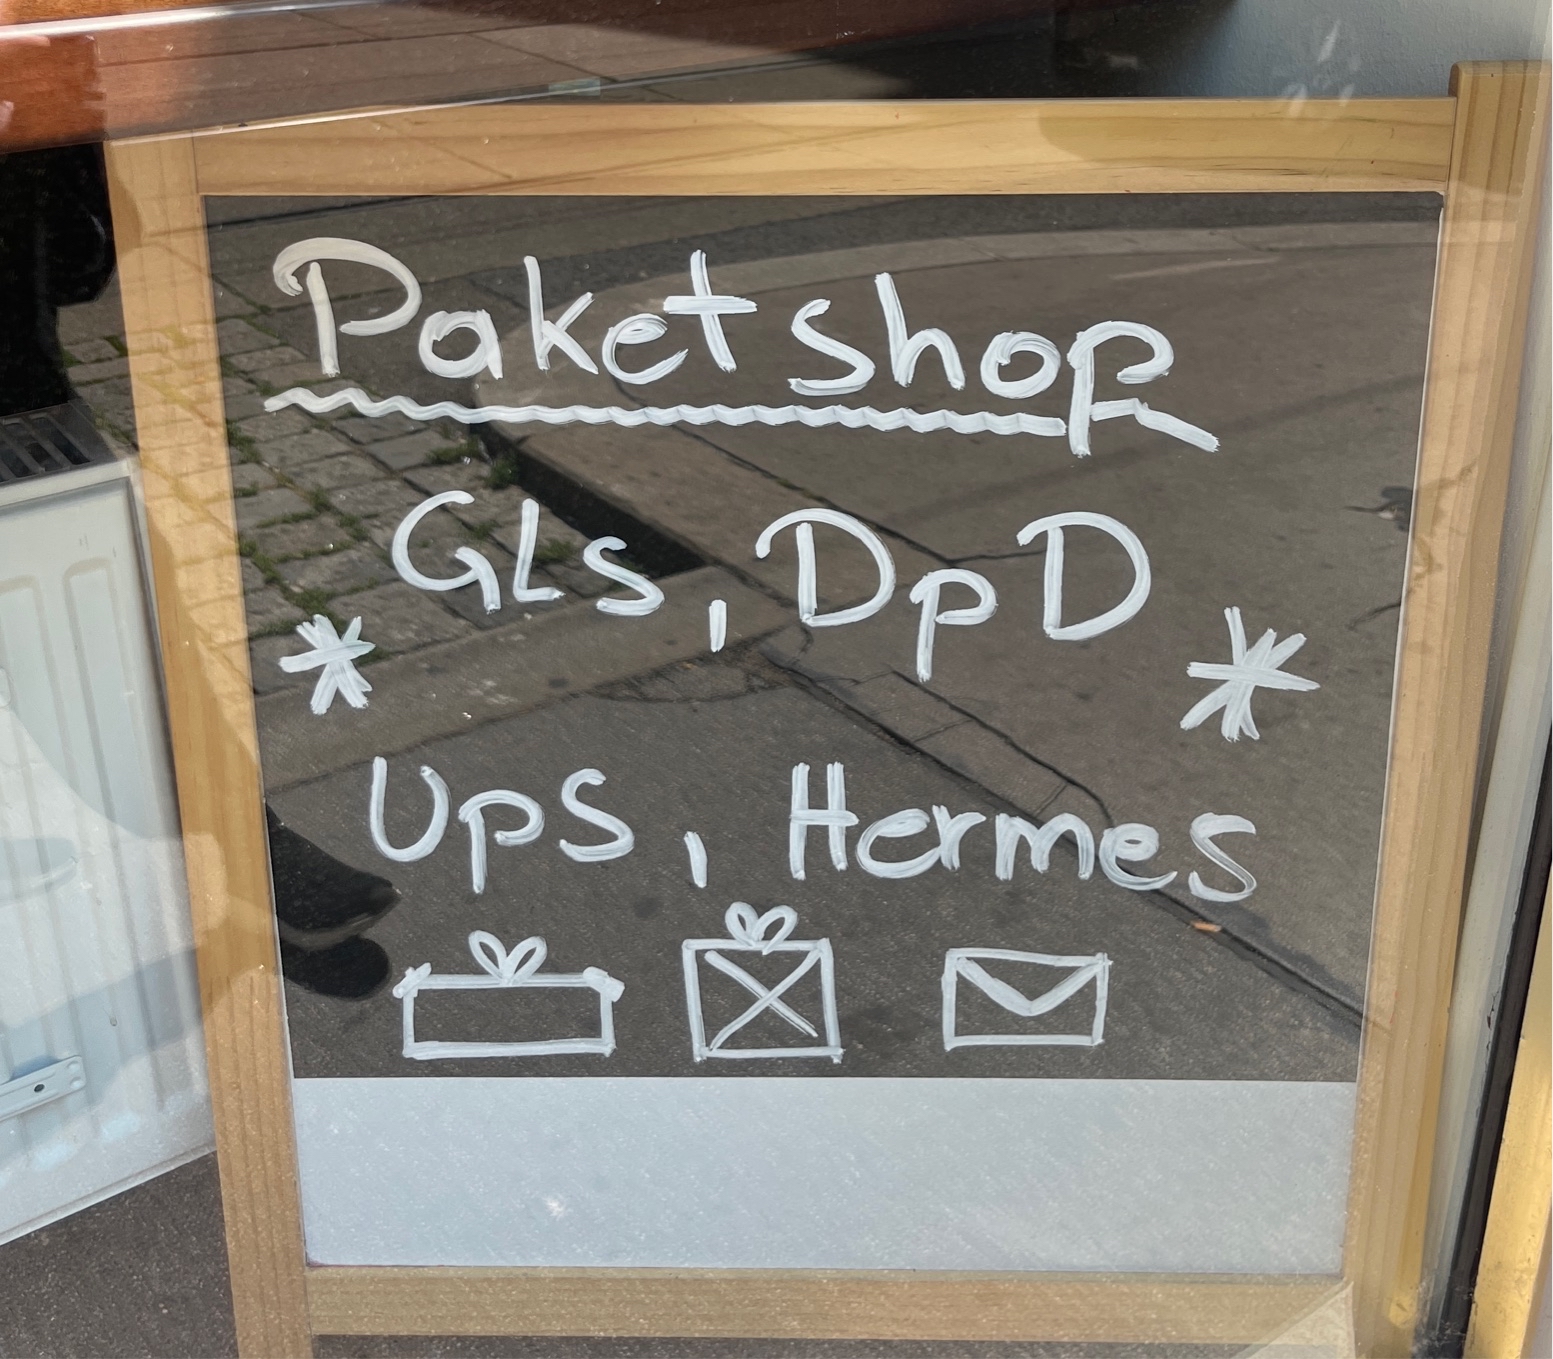 Paketshop
GLs, DpD
* *
UpS, Hermes